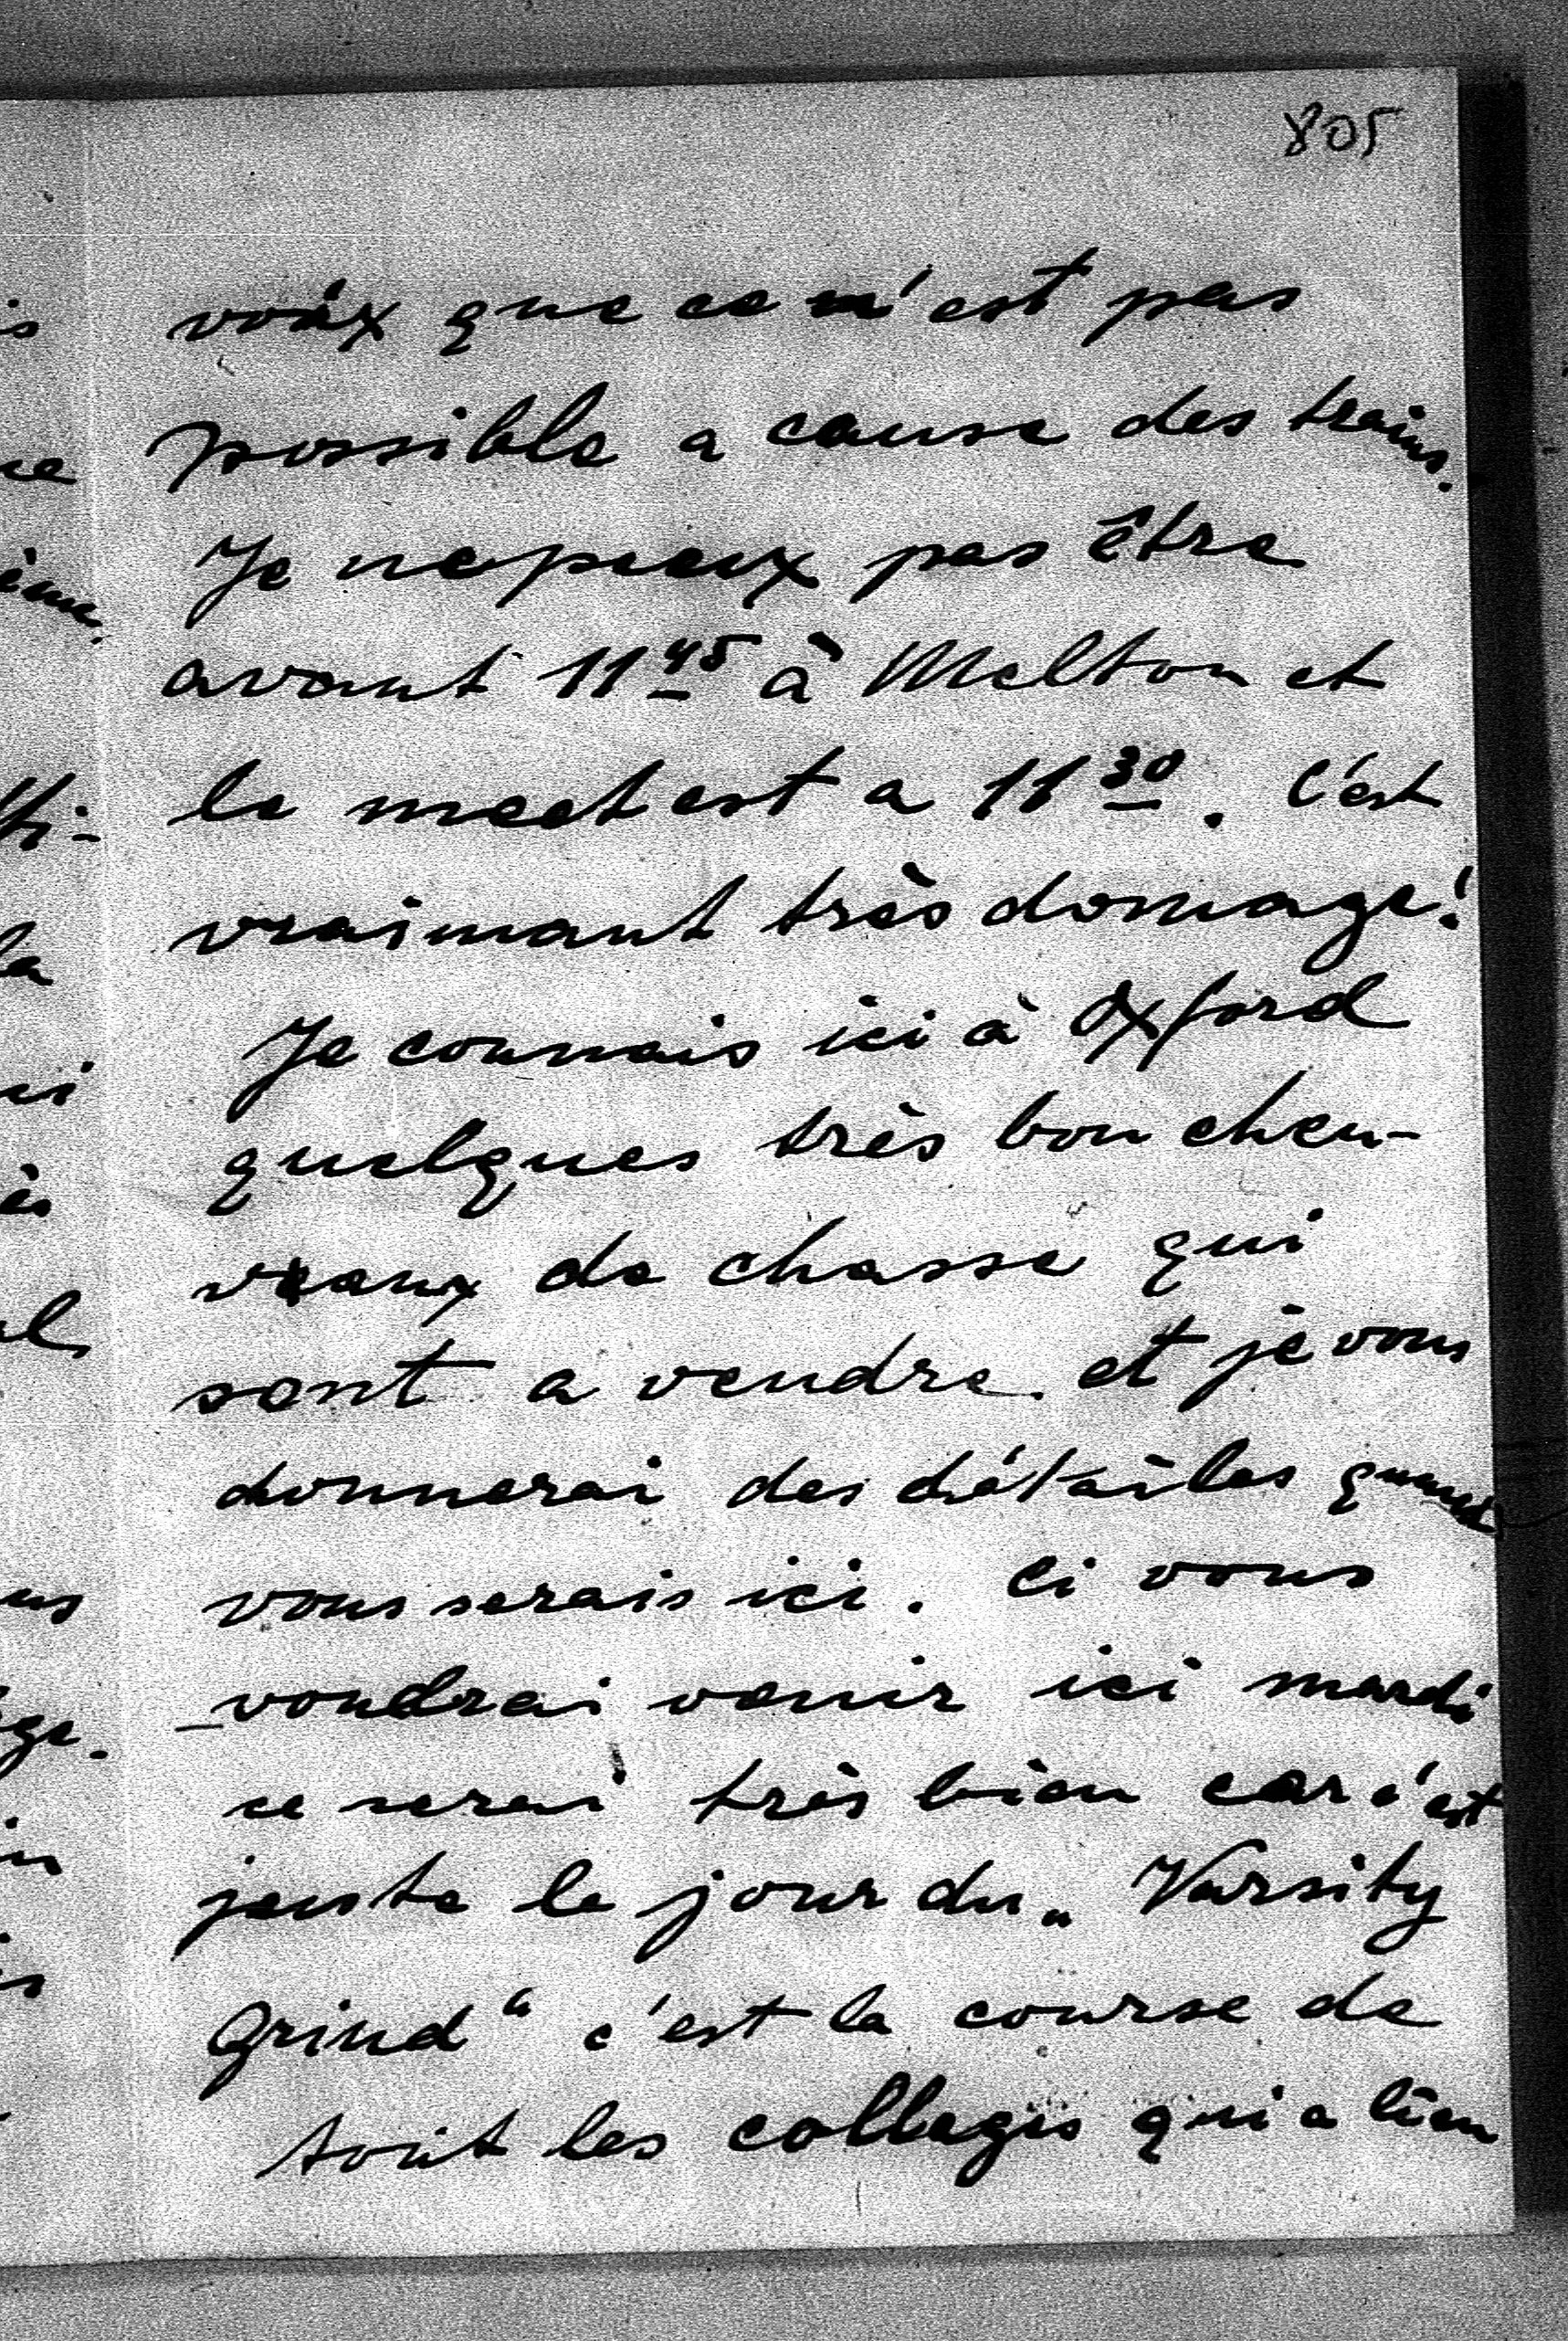 805
voix que ce n'est pas
possible a cause des trains.
Je ne peux pas être
avant 11 45 à Melton et
le meet est a 11 30. C'est
vraimant très domage!
Je connais ici à Oxford
quelques très bon cheu-
veaux de chasse qui
sont a vendre et je vous
donnerai des détailes quand
vous serais ici. Ci vous
voudrai venir ici mardi
ce serai très bien car c'est
juste le jour du „Varsity
Grind“ c'est la course de
tout les colleges qui a lieu